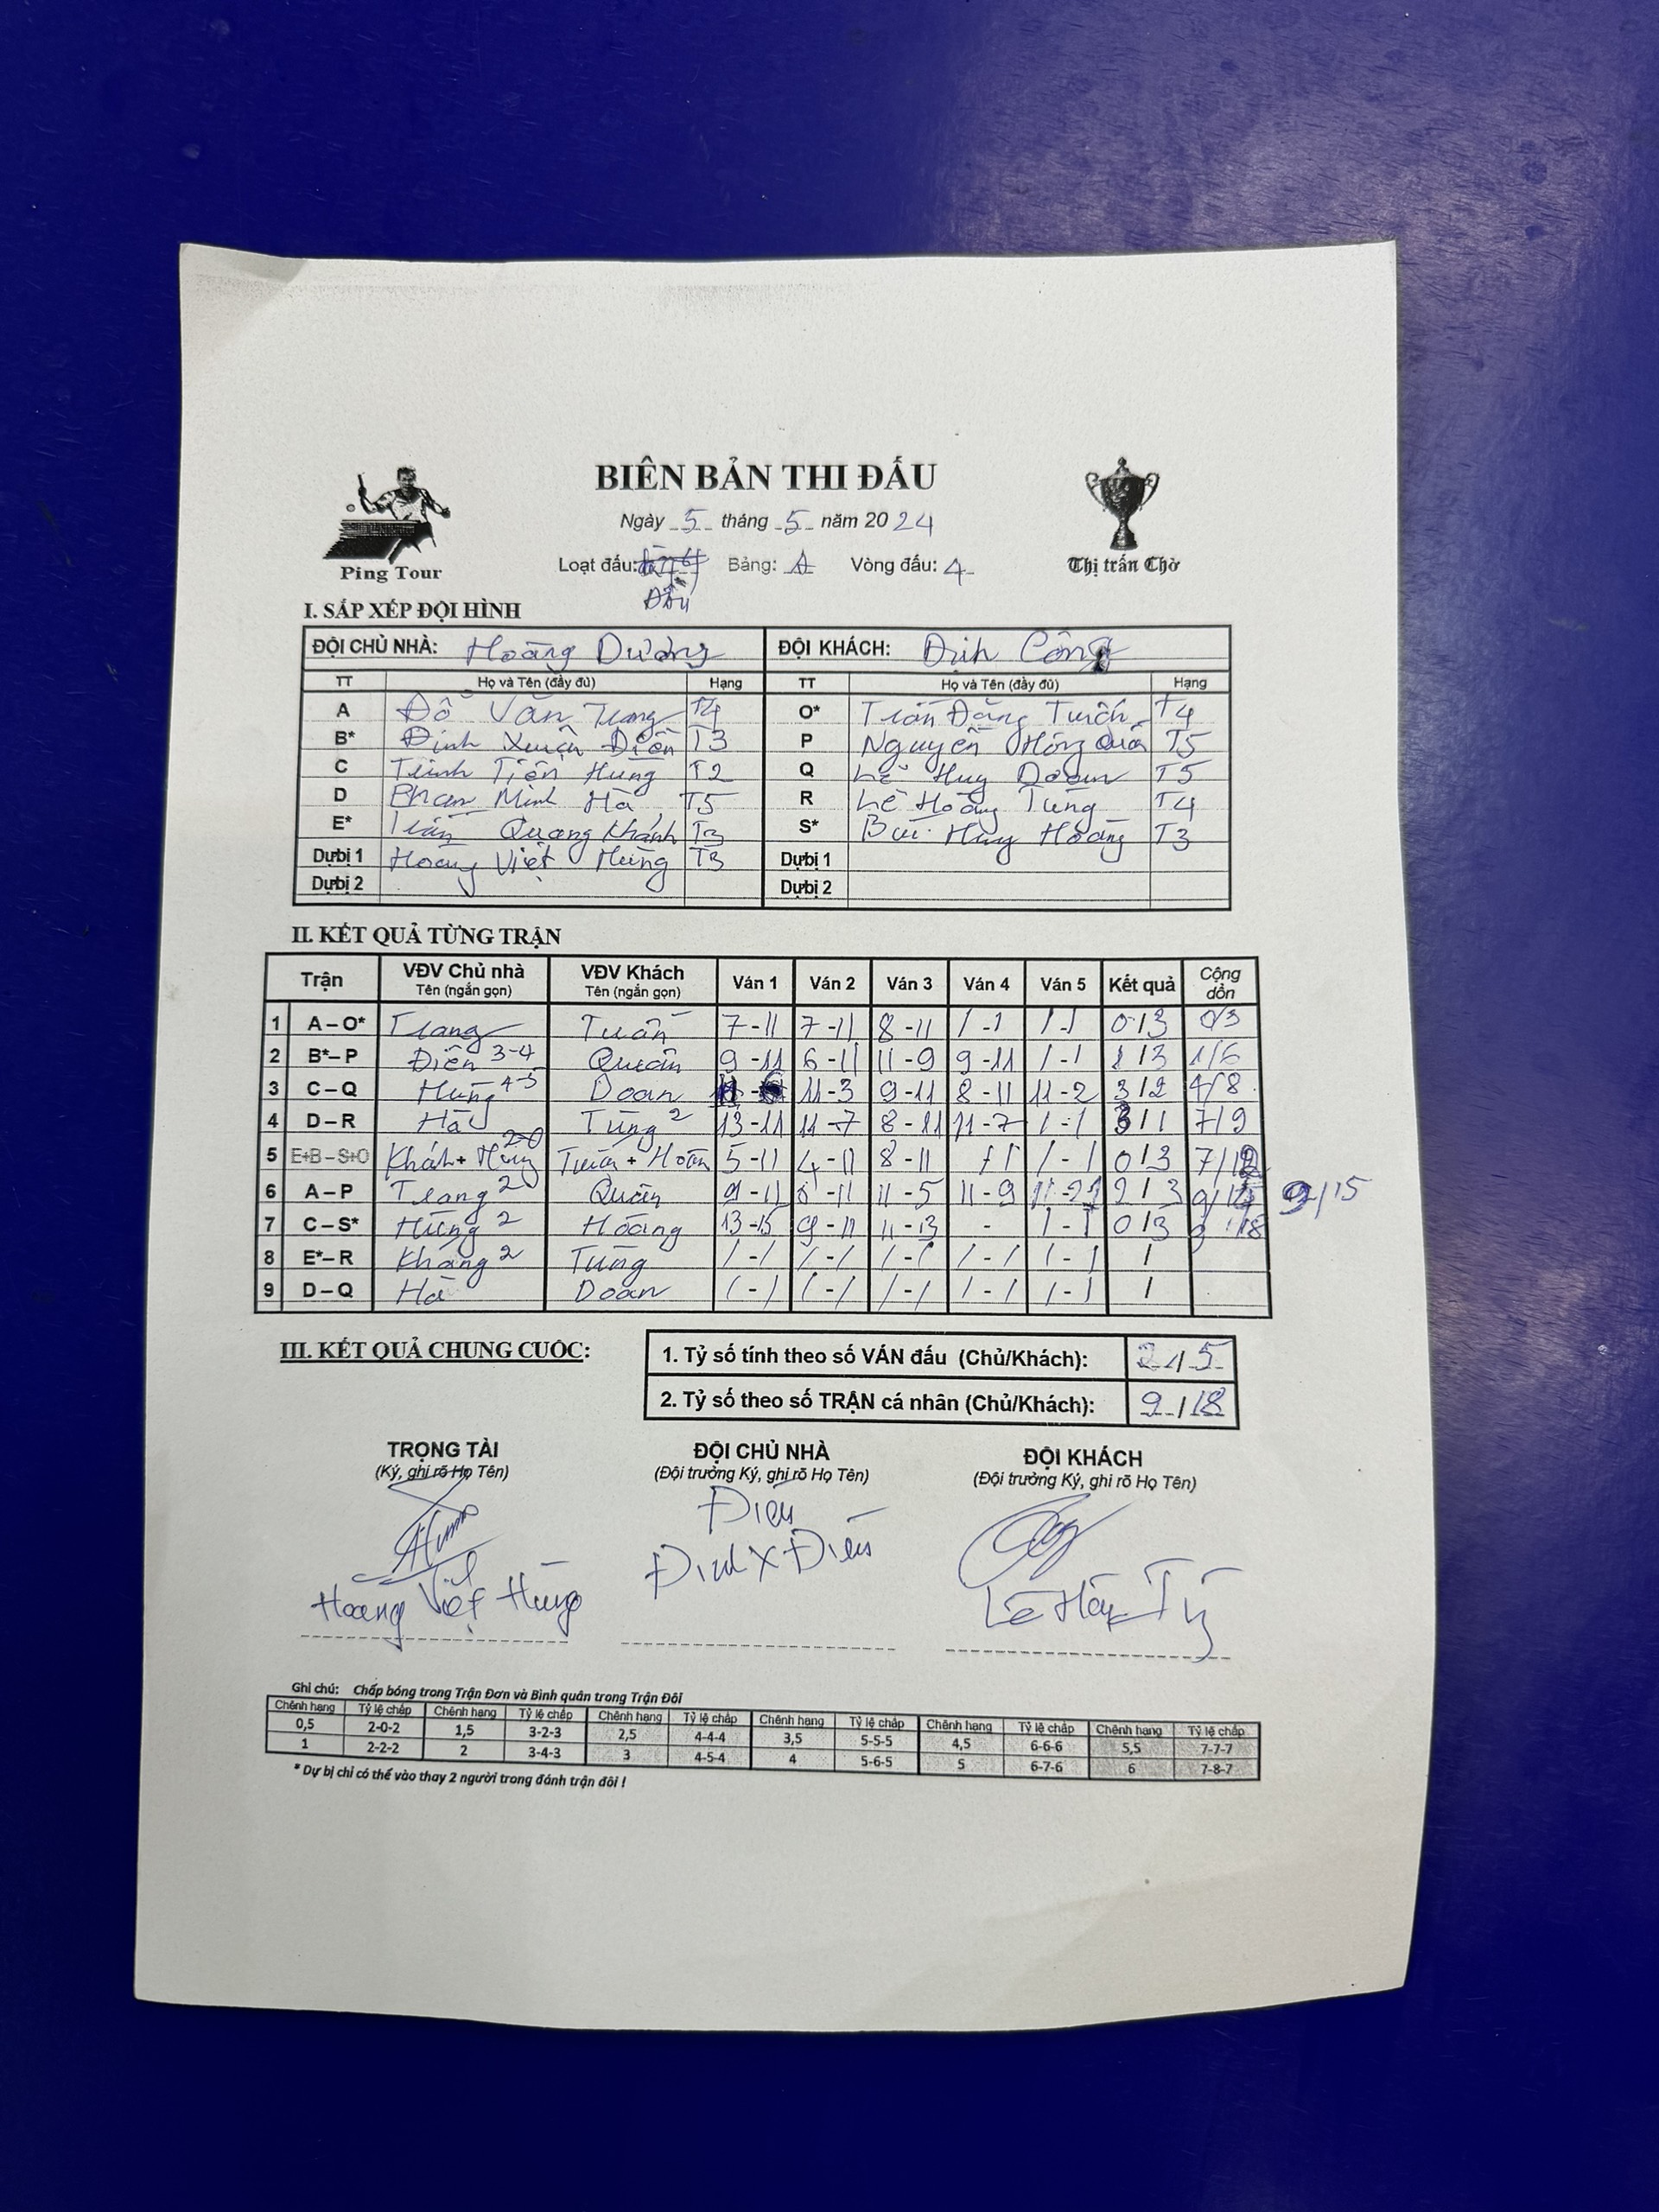 BIÊN BẢN THI ĐẤU
Ngày 5 tháng 5 năm 2024
Ping Tour
Loạt đấu: Đấu Bảng: A Vòng đấu: 4
Thị trấn Chờ
I. SẮP XẾP ĐỘI HÌNH
ĐỘI CHỦ NHÀ: Hoàng Dương ĐỘI KHÁCH: Định Công
TT Họ và Tên (đầy đủ) Hạng TT Họ và Tên (đầy đủ) Hạng
A Đỗ Văn Trang T4 O* Trần Đăng Tuấn T4
B* Đinh Xuân Điến T3 P Nguyễn Hồng Quân T5
C Trịnh Tiến Hưng T2 Q Lê Huy Doan T5
D Phan Minh Hà T5 R Lê Hoàng Tùng T4
E* Trần Quang Khánh T3 S* Bùi Huy Hoàng T3
Dự bị 1 Hoàng Việt Hùng T3 Dự bị 1
Dự bị 2 Dự bị 2
II. KẾT QUẢ TỪNG TRẬN
Trận VĐV Chủ nhà Tên (ngắn gọn) VĐV Khách Tên (ngắn gọn) Ván 1 Ván 2 Ván 3 Ván 4 Ván 5 Kết quả Cộng dồn
1 A – O* Trang Tuấn 7-11 7-11 8-11 / - / / - / 0/3 0/3
2 B* – P Điến 3-4 Quân 9-11 6-11 11-9 9-11 / - / 1/3 1/6
3 C – Q Hưng 4-5 Doan 11-3 9-11 8-11 11-2 3/2 4/8
4 D – R Hà Tùng 2 13-11 11-7 8-11 11-7 / - / 3/1 7/9
5 E+B – S+O Khánh + Hùng 2-0 Tuấn + Hoàng 5-11 4-11 8-11 / / / - / 0/3 7/12
6 A – P Trang 2 Quân 9-11 -11 11-5 11-9 2/3 9/15 9/15
7 C – S* Hưng 2 Hoàng 13-15 9-11 11-13 - / - / 0/3 9/18
8 E* – R Khánh 2 Tùng / - / / - / / - / / - / / - / /
9 D – Q Hà Doan / - / / - / / - / / - / / - / /
III. KẾT QUẢ CHUNG CUỘC:
1. Tỷ số tính theo số VÁN đấu (Chủ/Khách): 2/5
2. Tỷ số theo số TRẬN cá nhân (Chủ/Khách): 9/18
TRỌNG TÀI ĐỘI CHỦ NHÀ ĐỘI KHÁCH
(Ký, ghi rõ Họ Tên) (Đội trưởng Ký, ghi rõ Họ Tên) (Đội trưởng Ký, ghi rõ Họ Tên)
Điến
Đinh X Điến
Hoàng Việt Hùng Lê
Ghi chú: Chấp bóng trong Trận Đơn và Bình quân trong Trận Đôi
Chênh hạng Tỷ lệ chấp Chênh hạng Tỷ lệ chấp Chênh hạng Tỷ lệ chấp Chênh hạng Tỷ lệ chấp Chênh hạng Tỷ lệ chấp Chênh hạng Tỷ lệ chấp
0,5 2-0-2 1,5 3-2-3 2,5 4-4-4 3,5 5-5-5 4,5 6-6-6 5,5 7-7-7
1 2-2-2 2 3-4-3 3 4-5-4 4 5-6-5 5 6-7-6 6 7-8-7
* Dự bị chỉ có thể vào thay 2 người trong đánh trận đôi !